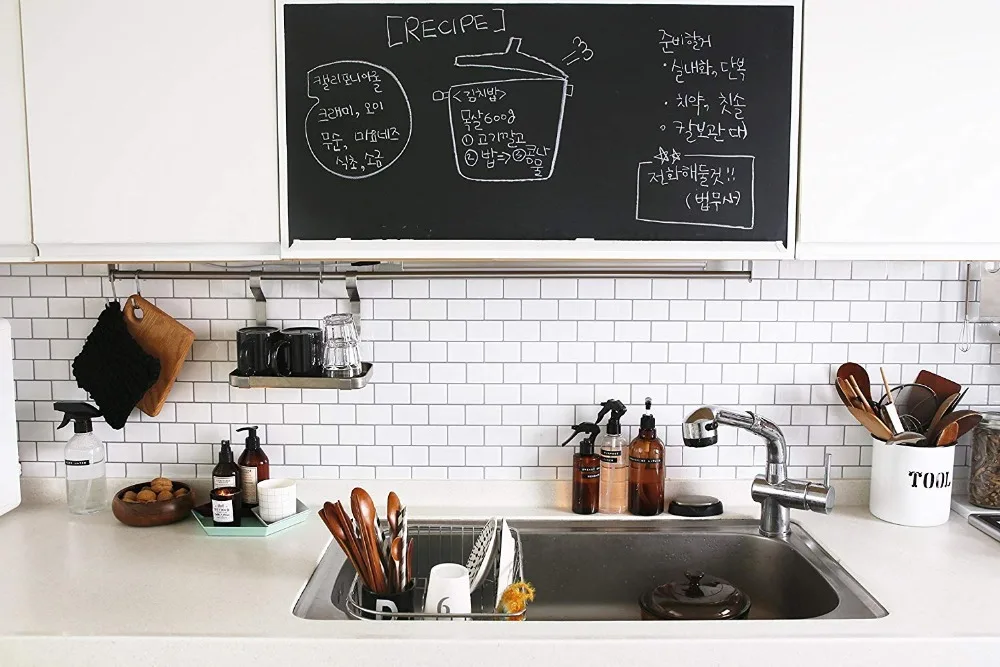 [RECIPE]
캘리포니아롤
크래미, 오이
무순, 마요네즈
식초, 소금
<김치밥>
목살 600g
① 고기깔고
② 밥=>③콩나
물
준비할거
· 실내화, 단복
· 치약, 칫솔
· 칼보관대
전화해둘것!!
(법무사)
TOOL
6